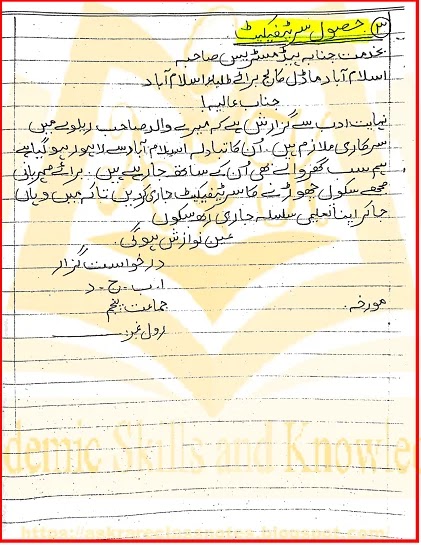 ۳ حصول سرٹیفیکیٹ
بخدمت جناب ہیڈ مسٹریس صاحبہ
اسلام آباد ماڈل کالج برائے طلبہ اسلام آباد
جناب عالیہ!
نہایت ادب سے گزارش ہے کہ میرے والد صاحب ریلوے میں
سرکاری ملازم ہیں۔ اُن کا تبادلہ اسلام آباد سے لاہور ہو گیا ہے
ہم سب گھر والے بھی اُن کے ساتھ جا رہے ہیں۔ برائے مہربانی
مجھے سکول چھوڑنے کا سرٹیفکیٹ جاری کریں تاکہ میں وہاں
جا کر اپنا تعلیمی سلسلہ جاری رکھ سکوں
عین نوازش ہو گی
درخواست گزار
ا۔ب۔ج۔د
مورخہ: جماعت پنجم
رول نمبر:
demic Skills and Knowle